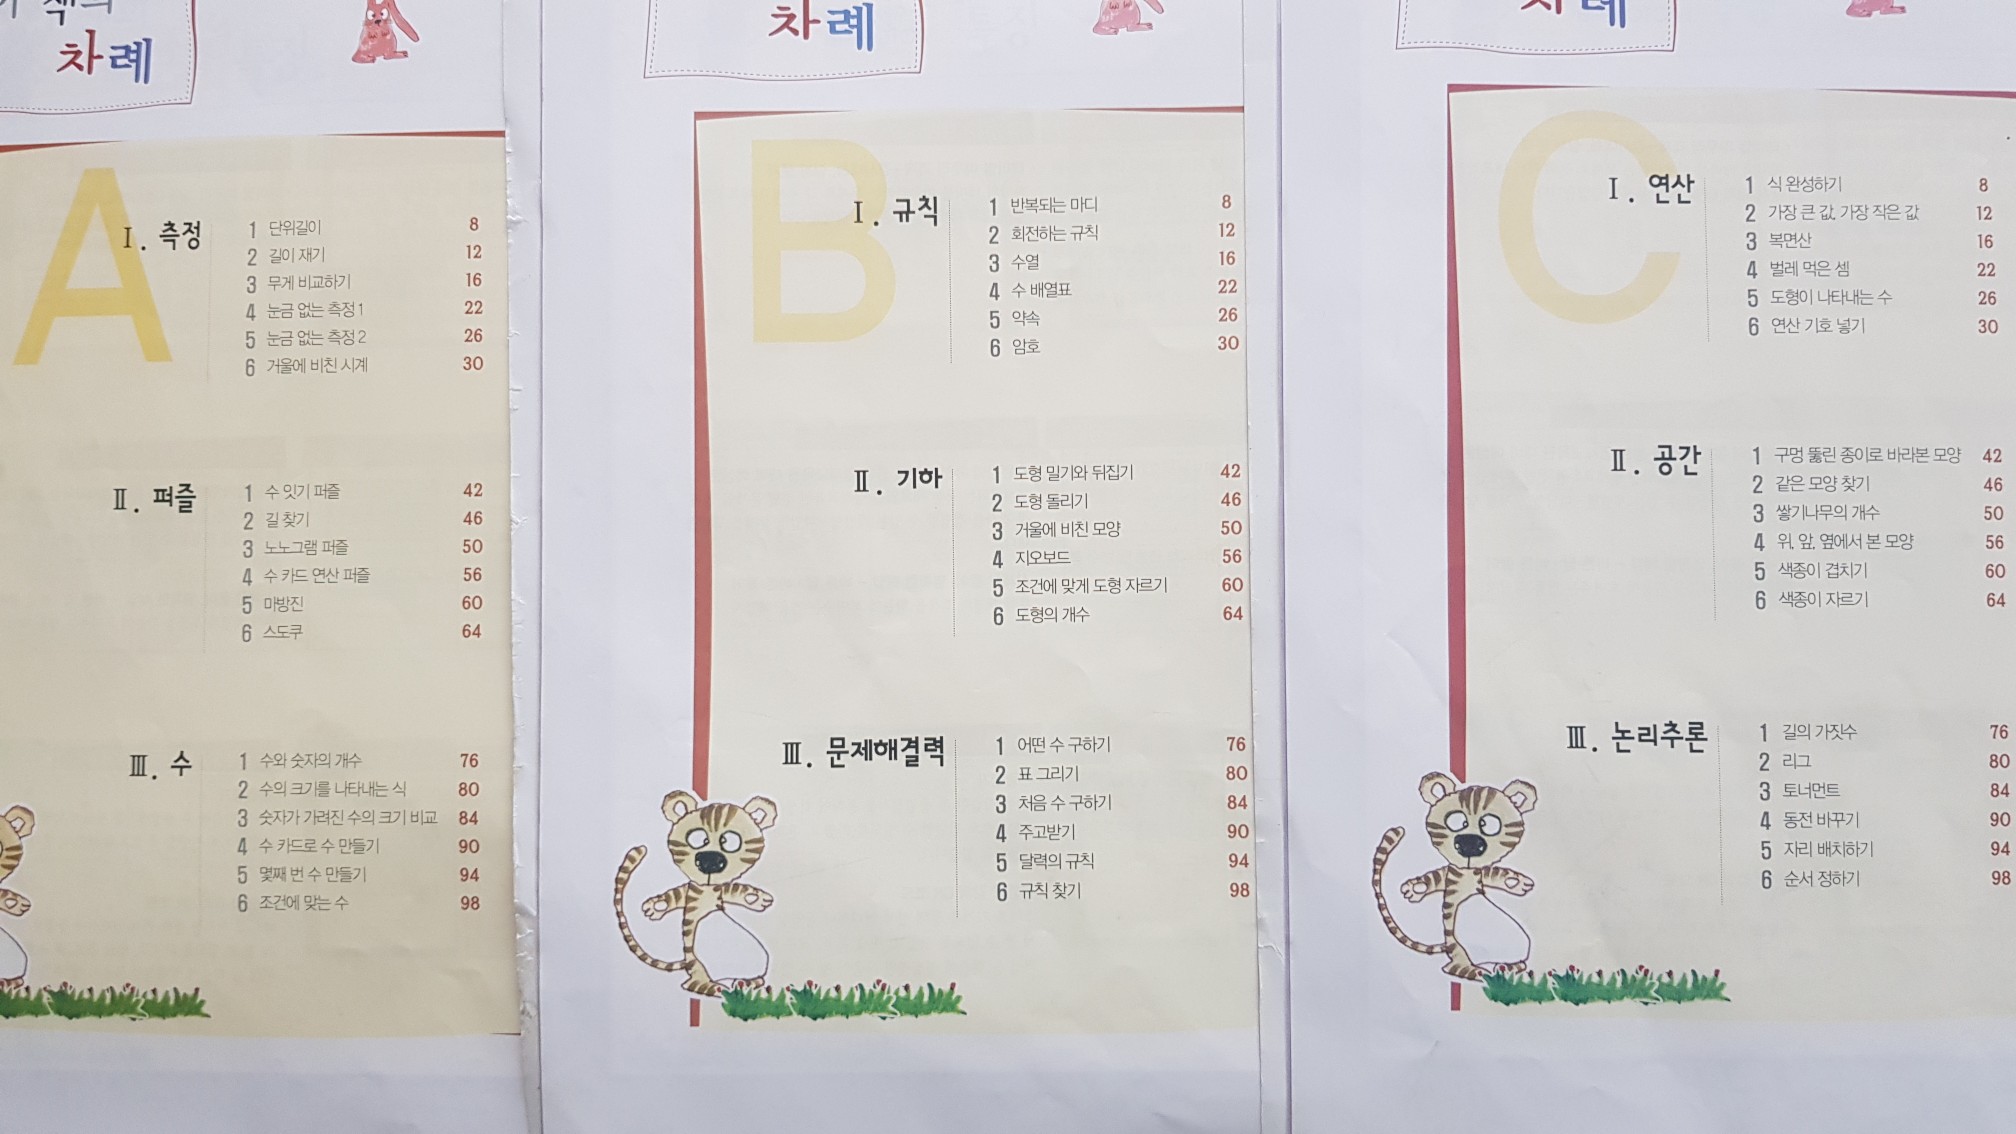 책의
차례
A
Ⅰ. 측정
1 단위길이 8
2 길이 재기 12
3 무게 비교하기 16
4 눈금 없는 측정 1 22
5 눈금 없는 측정 2 26
6 거울에 비친 시계 30
Ⅱ. 퍼즐
1 수 잇기 퍼즐 42
2 길 찾기 46
3 노노그램 퍼즐 50
4 수 카드 연산 퍼즐 56
5 마방진 60
6 스도쿠 64
Ⅲ. 수
1 수와 숫자의 개수 76
2 수의 크기를 나타내는 식 80
3 숫자가 가려진 수의 크기 비교 84
4 수 카드로 수 만들기 90
5 몇째 번 수 만들기 94
6 조건에 맞는 수 98
차례
B
Ⅰ. 규칙
1 반복되는 마디 8
2 회전하는 규칙 12
3 수열 16
4 수 배열표 22
5 약속 26
6 암호 30
Ⅱ. 기하
1 도형 밀기와 뒤집기 42
2 도형 돌리기 46
3 거울에 비친 모양 50
4 지오보드 56
5 조건에 맞게 도형 자르기 60
6 도형의 개수 64
Ⅲ. 문제해결력
1 어떤 수 구하기 76
2 표 그리기 80
3 처음 수 구하기 84
4 주고받기 90
5 달력의 규칙 94
6 규칙 찾기 98
차례
C
Ⅰ. 연산
1 식 완성하기 8
2 가장 큰 값, 가장 작은 값 12
3 복면산 16
4 벌레 먹은 셈 22
5 도형이 나타내는 수 26
6 연산 기호 넣기 30
Ⅱ. 공간
1 구멍 뚫린 종이로 바라본 모양 42
2 같은 모양 찾기 46
3 쌓기나무의 개수 50
4 위, 앞, 옆에서 본 모양 56
5 색종이 겹치기 60
6 색종이 자르기 64
Ⅲ. 논리추론
1 길의 가짓수 76
2 리그 80
3 토너먼트 84
4 동전 바꾸기 90
5 자리 배치하기 94
6 순서 정하기 98